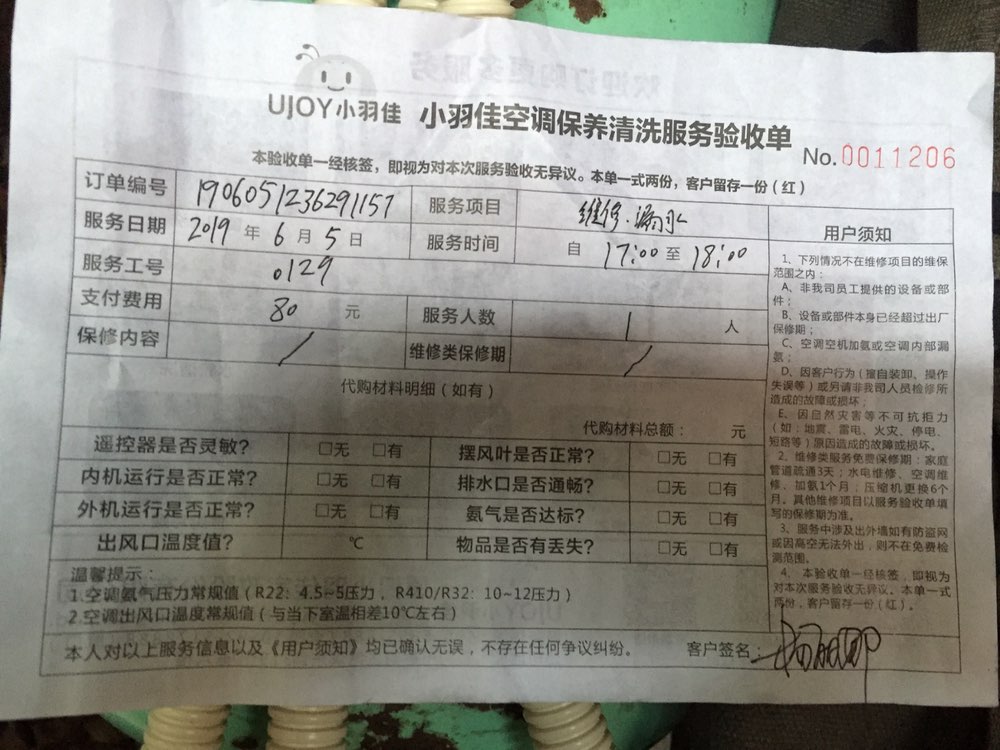 UJOY小羽佳 小羽佳空调保养清洗服务验收单
No.0011206
本验收单一经核签，即视为对本次服务验收无异议。本单一式两份，客户留存一份（红）
订单编号 1906051236291157 服务项目 维修.漏水
服务日期 2019 年 6 月 5 日 服务时间 自 17:00 至 18:00
服务工号 0129
支付费用 80 元 服务人数 1 人
保修内容 / 维修类保修期 /
代购材料明细（如有）
代购材料总额： 元
遥控器是否灵敏？ □无 □有 摆风叶是否正常？ □无 □有
内机运行是否正常？ □无 □有 排水口是否通畅？ □无 □有
外机运行是否正常？ □无 □有 氨气是否达标？ □无 □有
出风口温度值？ ℃ 物品是否有丢失？ □无 □有
温馨提示：
1.空调氨气压力常规值（R22：4.5~5压力，R410/R32：10~12压力）
2.空调出风口温度常规值（与当下室温相差10℃左右）
本人对以上服务信息以及《用户须知》均已确认无误，不存在任何争议纠纷。 客户签名：
用户须知
1、下列情况不在维修项目的维保
范围之内：
A、非我司员工提供的设备或部
件；
B、设备或部件本身已经超过出厂
保修期；
C、空调空机加氨或空调内部漏
氨；
D、因客户行为（擅自装卸、操作
失误等）或另请非我司人员检修所
造成的故障或损坏；
E、因自然灾害等不可抗拒力
（如：地震、雷电、火灾、停电、
短路等）原因造成的故障或损坏。
2、维修类服务免费保修期：家庭
管道疏通3天；水电维修、空调维
修、加氨1个月；压缩机更换6个
月。其他维修项目以服务验收单填
写的保修期为准。
3、服务中涉及出外墙如有防盗网
或因高空无法外出，则不在免费检
测范围。
4、本验收单一经核签，即视为
对本次服务验收无异议。本单一式
两份，客户留存一份（红）。